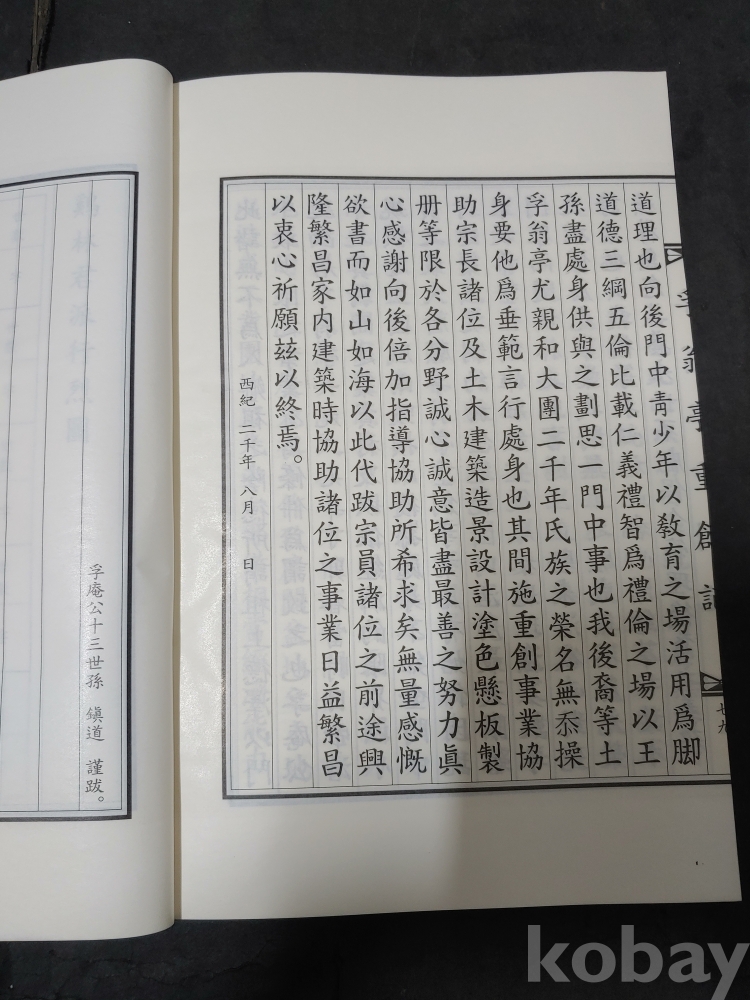 孚翁亭重創記
七九
道理也向後門中靑少年以敎育之場活用爲脚
道德三綱五倫比載仁義禮智爲禮倫之場以王
孫盡處身供與之劃思一門中事也我後裔等土
孚翁亭尤親和大團二千年氏族之榮名無忝操
身要他爲垂範言行處身也其間施重創事業協
助宗長諸位及土木建築造景設計塗色懸板製
册等限於各分野誠心誠意皆盡最善之努力眞
心感謝向後倍加指導協助所希求矣無量感慨
欲書而如山如海以此代跋宗員諸位之前途興
隆繁昌家內建築時協助諸位之事業日益繁昌
以衷心祈願玆以終焉。
西紀 二千年 八月 日
孚庵公十三世孫 鎭道 謹跋。
kobay